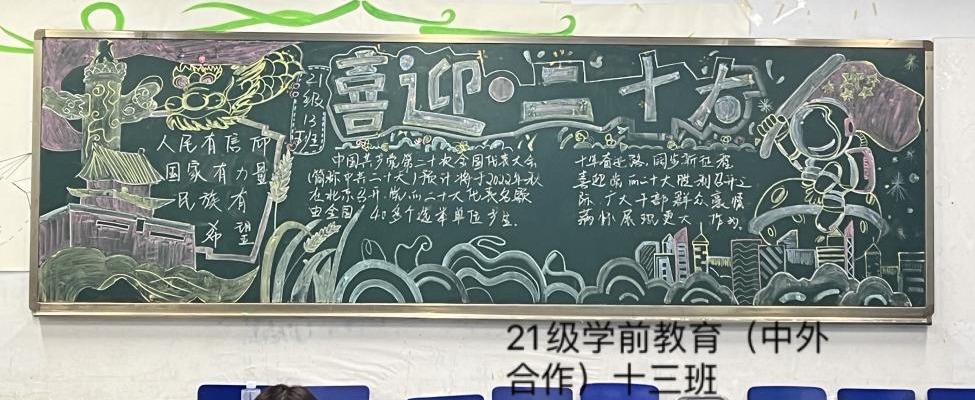 喜迎二十大
21级13班
人民有信仰
国家有力量
民族有
希望
中国共产党第二十次全国代表大会
(简称中共二十大)预计将于2022年秋
在北京召开.党的二十大代表名额
由全国 40多个选举单位产生.
十年奋进路,同步新征程
喜迎党的二十大胜利召开之
际,广大干部群众
展现更大 作为.
21级学前教育（中外
合作）十三班